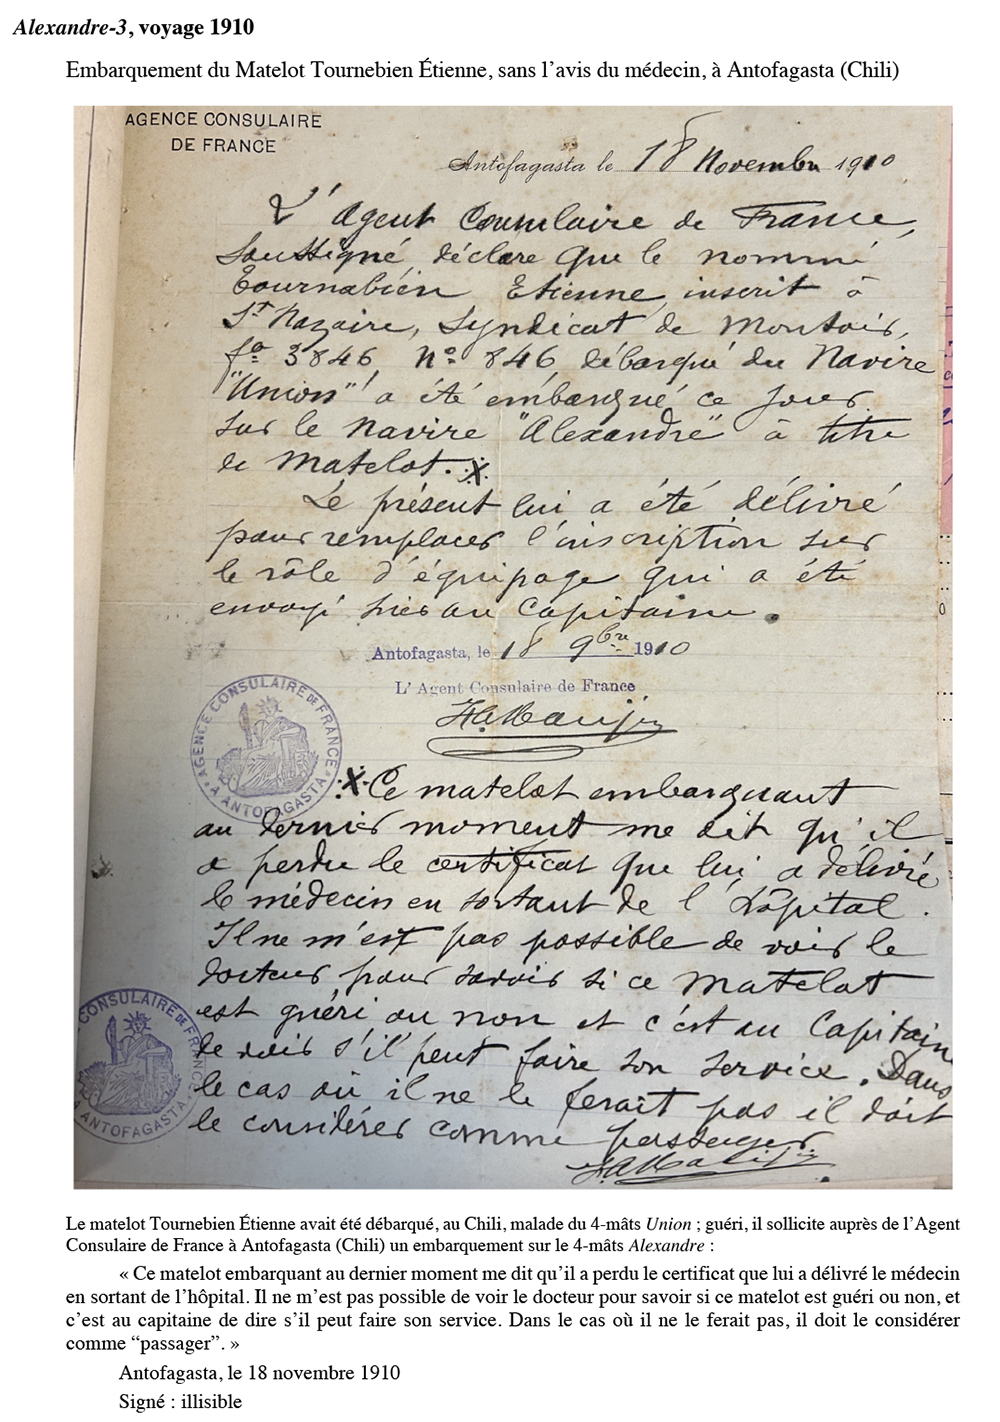 Alexandre-3, voyage 1910
Embarquement du Matelot Tournebien Étienne, sans l'avis du médecin, à Antofagasta (Chili)
AGENCE CONSULAIRE
DE FRANCE
Antofagasta le 18 Novembre 1910
L'Agent Consulaire de France,
Soussigné, déclare que le nommé
Tournabien Etienne inscrit à
St Nazaire, Syndicat de Montoir,
fo 3846, No 846, débarqué du Navire
"Union" a été embarqué ce jour
sur le navire "Alexandre" à titre
de Matelot. X
Le présent lui a été délivré
pour remplacer l'inscription sur
le rôle d'équipage qui a été
envoyé hier au Capitaine.
Antofagasta, le 18 9bre 1910
L'Agent Consulaire de France
AGENCE CONSULAIRE DE FRANCE
A ANTOFAGASTA
X Ce matelot embarquant
au dernier moment me dit qu'il
a perdu le certificat que lui a délivré
le médecin en sortant de l'hôpital.
Il ne m'est pas possible de voir le
docteur pour savoir si ce matelot
est guéri ou non et c'est au Capitaine
de dire s'il peut faire son service. Dans
le cas où il ne le ferait pas il doit
le considérer comme passager
CONSULAIRE DE FRANCE
A ANTOFAGASTA
Le matelot Tournebien Étienne avait été débarqué, au Chili, malade du 4-mâts Union ; guéri, il sollicite auprès de l'Agent
Consulaire de France à Antofagasta (Chili) un embarquement sur le 4-mâts Alexandre :
« Ce matelot embarquant au dernier moment me dit qu'il a perdu le certificat que lui a délivré le médecin
en sortant de l'hôpital. Il ne m'est pas possible de voir le docteur pour savoir si ce matelot est guéri ou non, et
c'est au capitaine de dire s'il peut faire son service. Dans le cas où il ne le ferait pas, il doit le considérer
comme “passager”. »
Antofagasta, le 18 novembre 1910
Signé : illisible